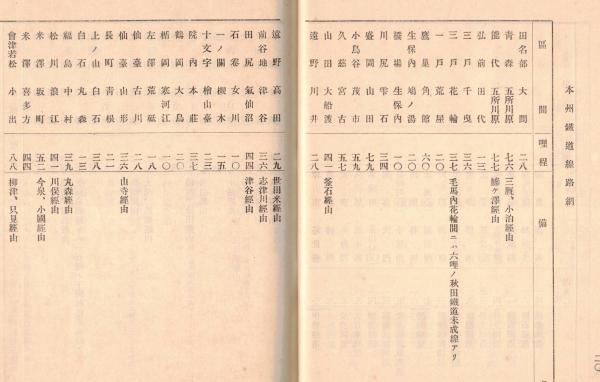 本州鐵道線路網
區間 哩程 備
田名部 大間 二八
青森 五所川原 七六 三厩、小泊經由
能代 五所川原 七七 鰺ケ澤經由
弘前 田代 一三
三戸 千曳 三六
三戸 花輪 三七 毛馬内花輪間ニハ六哩ノ秋田鐵道未成線アリ
一戸 荒屋 二〇
鷹巣 角館 六〇
生保内 鳩ノ湯 一〇
橋場 生保内
川尻 雫石 三四
盛岡 山田 七九
小鳥谷 茂市 五七
久慈 宮古 五九
山田 大船渡 四一 釜石經由
遠野 川井 二八
遠野 高田 二九 世田米經由
前谷地 津谷 三六 志津川經由
田尻 氣仙沼 四四 津谷經由
石卷 女川 一〇
一ノ關 槻木 一五
十文字 檜山臺 二三
院内 本莊 三一
鶴岡 大鳥 二〇
楯岡 寒河江 一〇
左澤 荒砥 一八
仙臺 古川 二八
仙臺 山形 三六 山寺經由
長町 青根 二一
上ノ山 白石 三八
白石 丸森 一三
福島 中村 三九 丸森經由
松川 浪江 四一 川俣經由
米澤 坂町 五二 今泉、小國經由
米澤 喜多方 四四
會津若松 小出 八八 柳津、只見經由